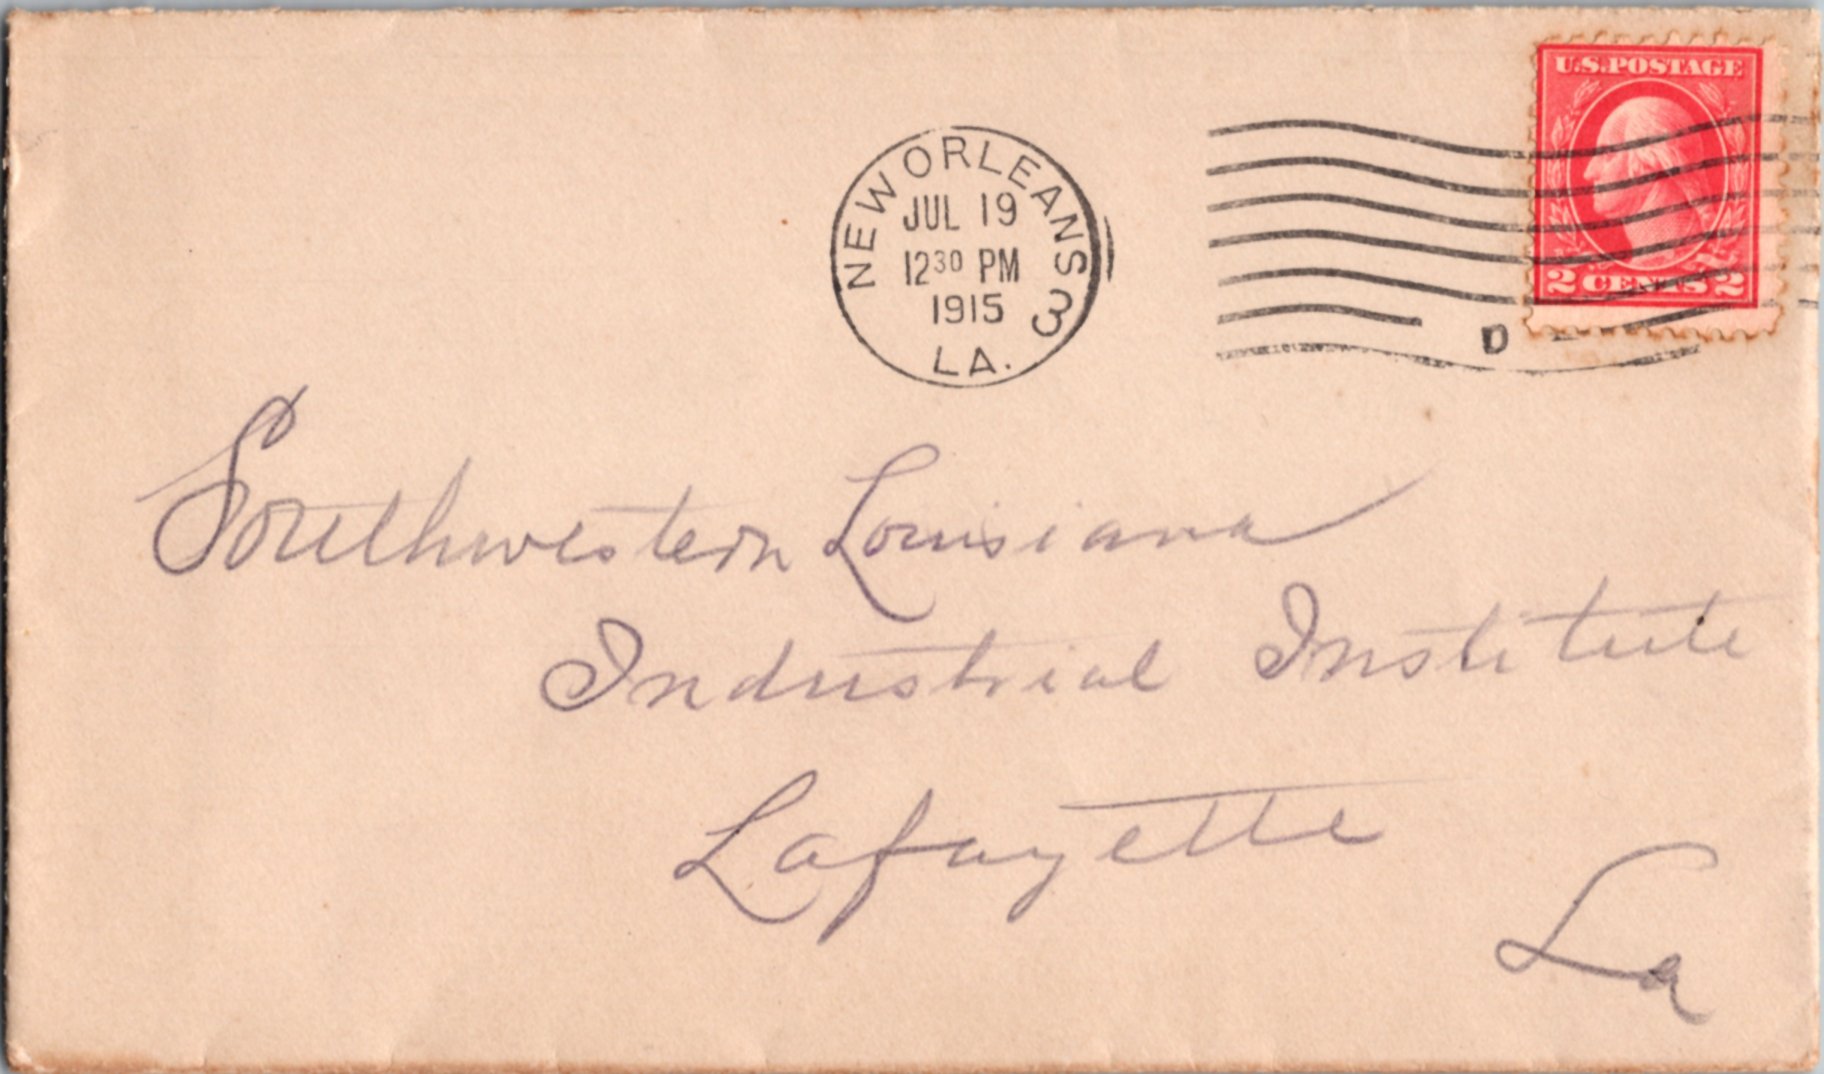 U.S.POSTAGE
2 CENTS 2
NEW ORLEANS 3
JUL 19
12 30 PM
1915
LA.
D
Southwestern Louisiana
Industrial Institute
Lafayette
La